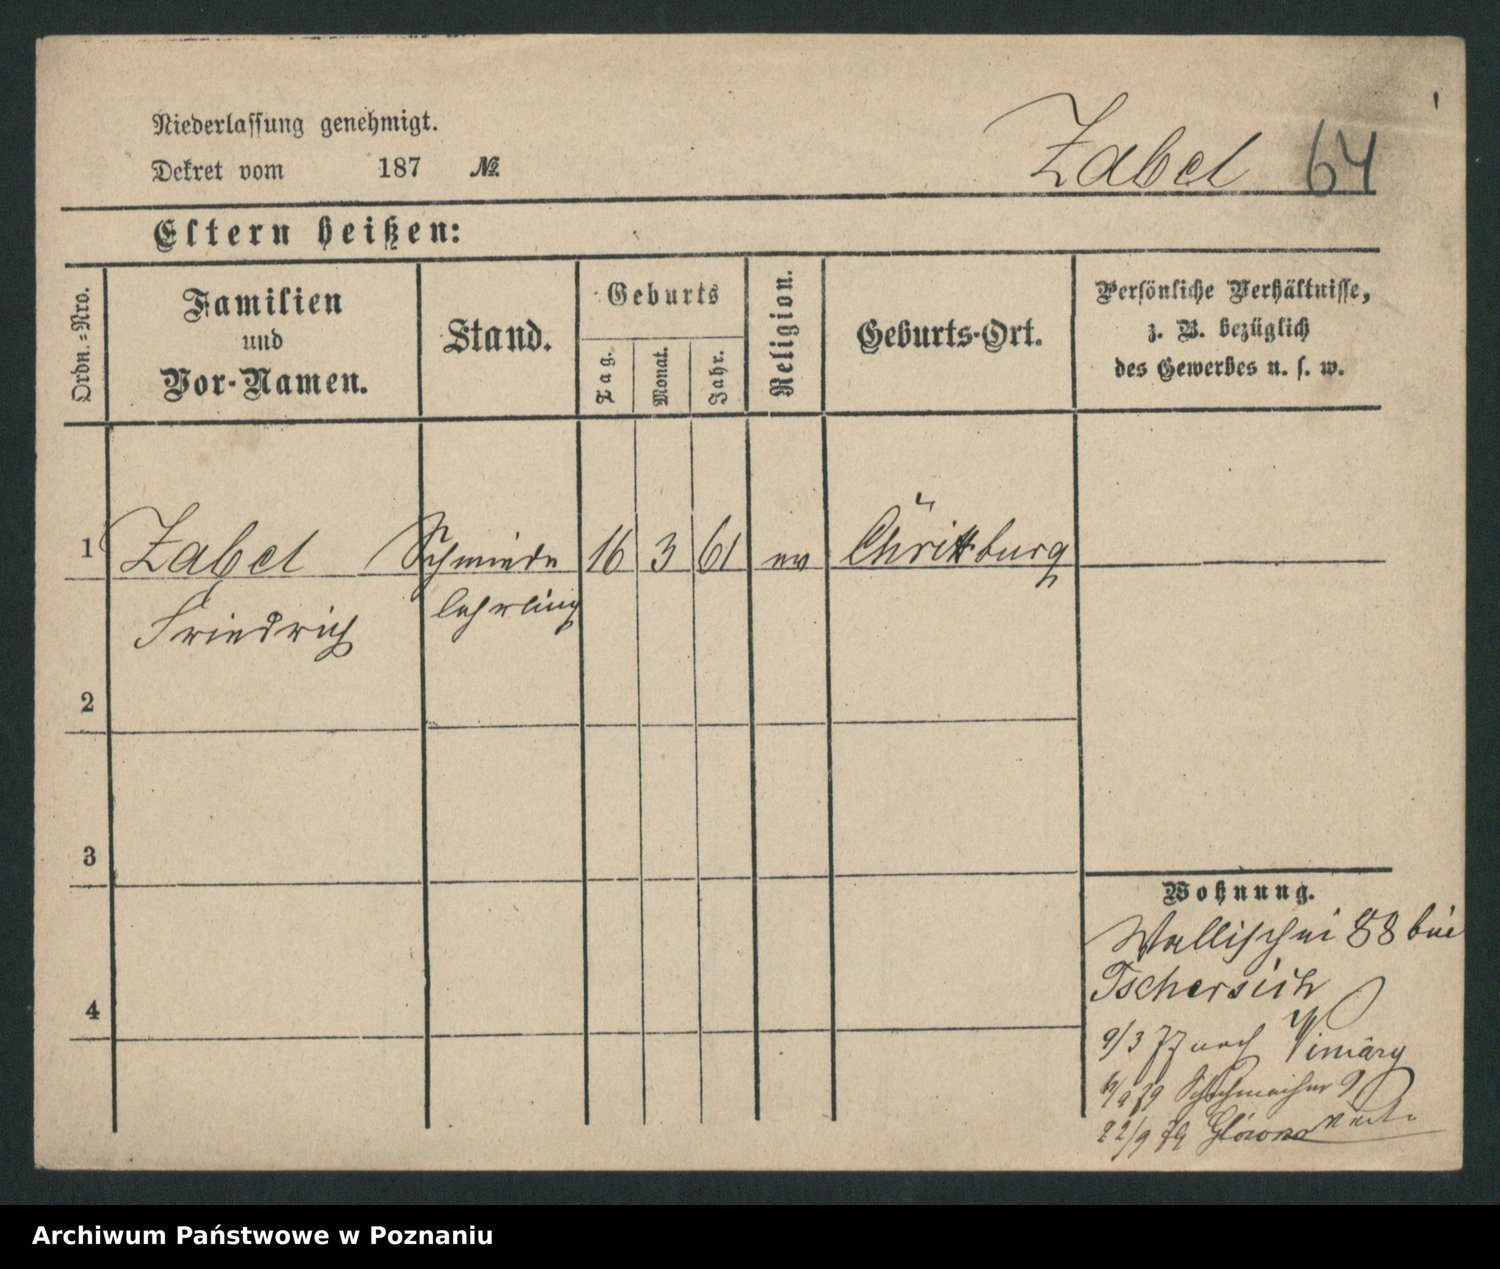 Niederlassung genehmigt.
Dekret vom 187 №
Zabel 64
Eltern heißen:
Ordn.-Nro.
Familien
und
Vor-Namen.
Stand.
Geburts
Tag.
Monat.
Jahr.
Religion.
Geburts-Ort.
Persönliche Verhältnisse,
z. B. bezüglich
des Gewerbes u. s. w.
1 Zabel Schmiede 16 3 61 ev Christburg
Friedrich lehrling
2
3
4
Wohnung.
Wallischei 88 bei
Tschersich
9/3 77 nach
79
22/9 79 Glowno
Archiwum Państwowe w Poznaniu